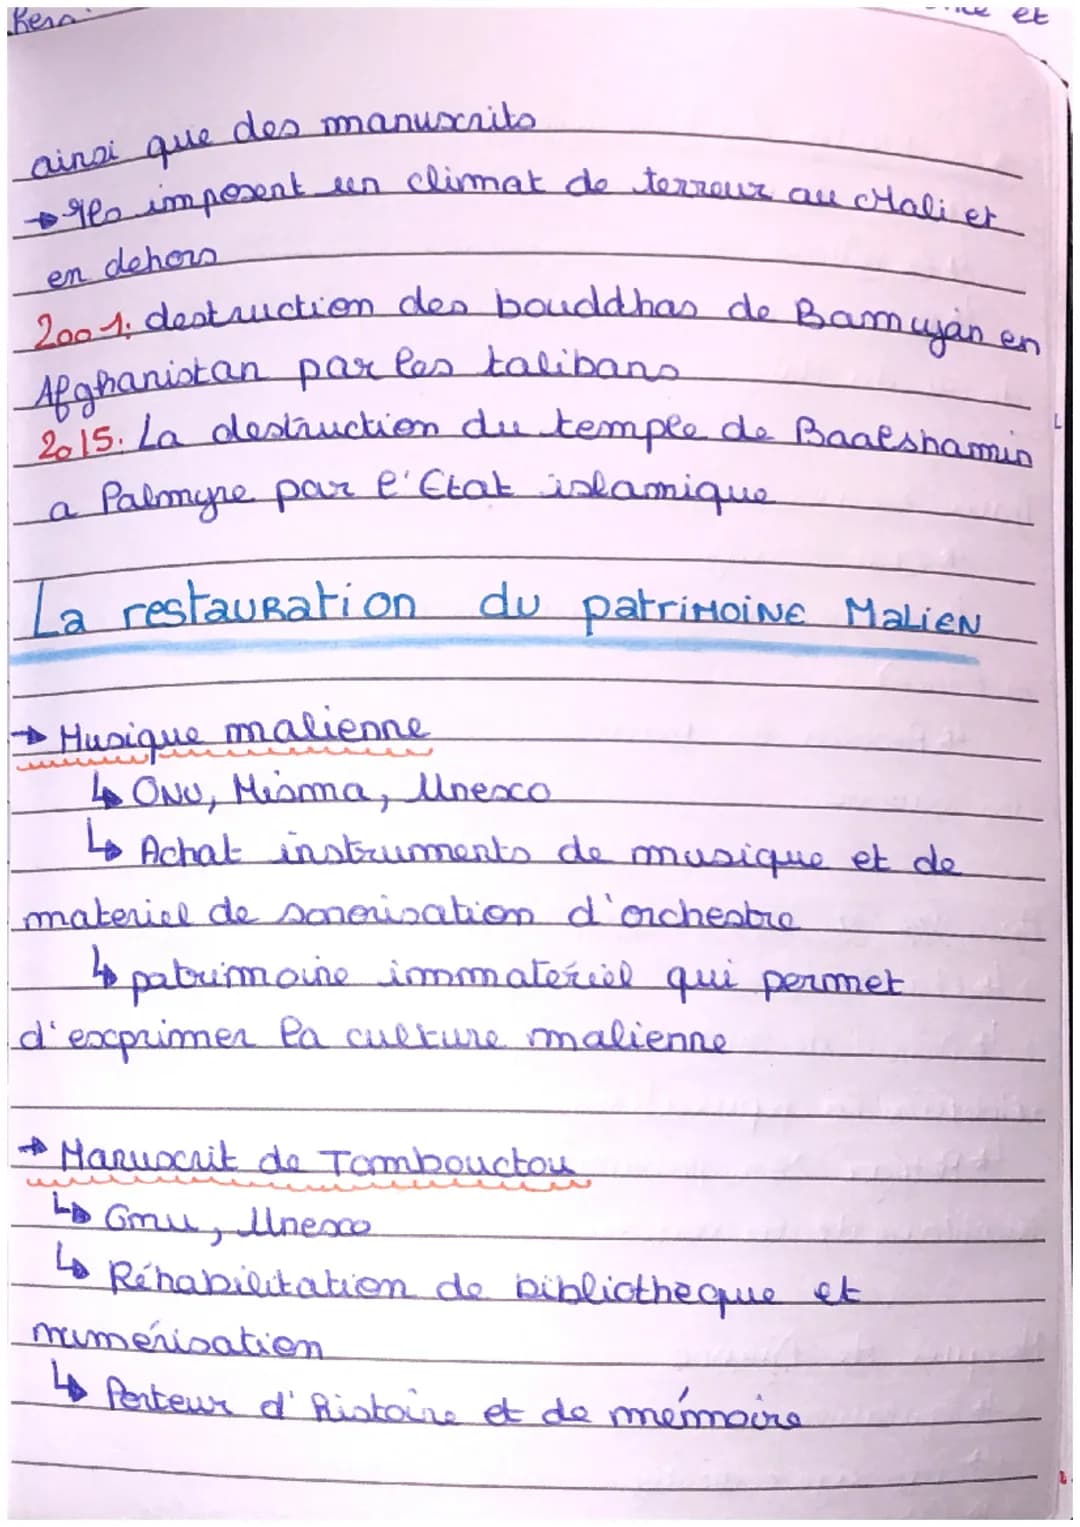 et
ainsi que des manuscrits
→ Ils imposent un climat de terreur au Mali et
en dehors
2001: destruction des bouddhas de Bamuyán en
Afghanistan par les talibans
2015: La destruction du temple de Baalshamin
a Palmyre par l'Etat islamique
La restauration du patrimoine Malien
→ Musique malienne
↳ ONU, Misma, Unesco
↳ Achat instruments de musique et de
materiel de sonorisation d'orchestre
↳ patrimoine immatériel qui permet
d'exprimer la culture malienne
→ Manuscrit de Tombouctou
↳ Onu, Unesco
↳ Réhabilitation de bibliotheque et
numérisation
↳ Porteur d'histoire et de mémoire